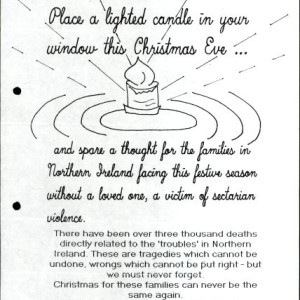 Place a lighted candle in your
window this Christmas Eve ...
and spare a thought for the families in
Northern Ireland facing this festive season
without a loved one, a victim of sectarian
violence.
There have been over three thousand deaths
directly related to the 'troubles' in Northern
Ireland. These are tragedies which cannot be
undone, wrongs which cannot be put right - but
we must never forget.
Christmas for these families can never be the
same again.